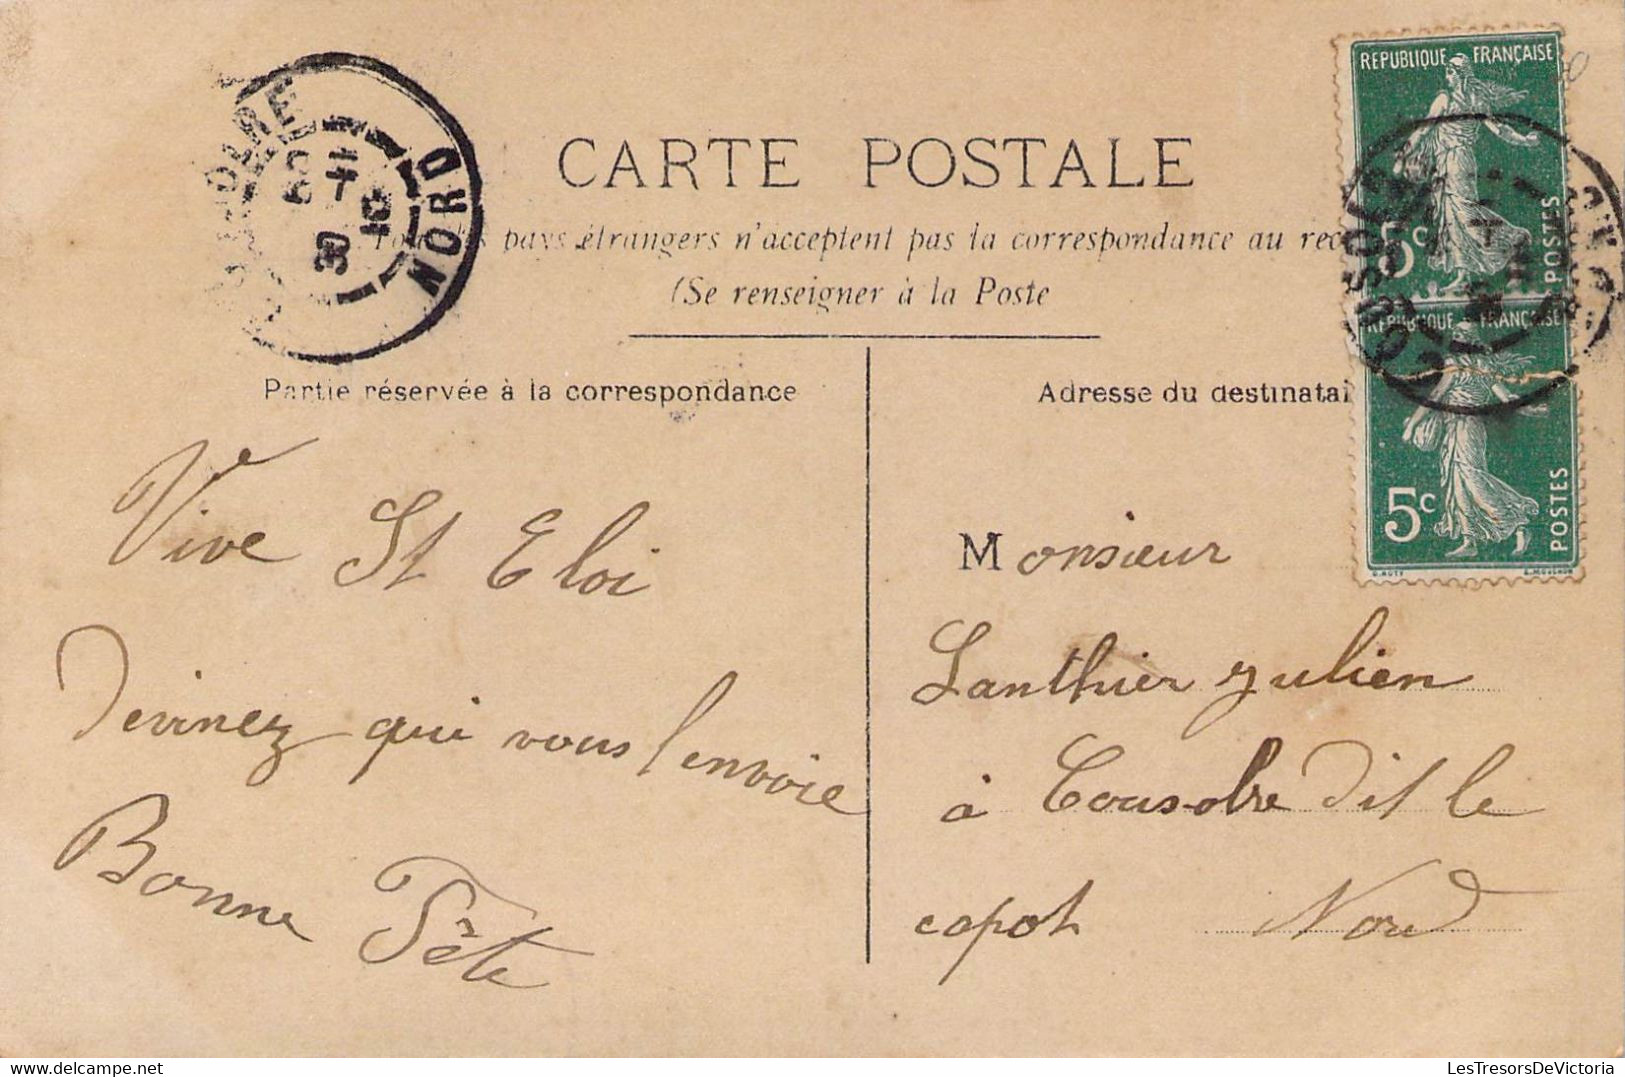 CARTE POSTALE
pays étrangers n'acceptent pas la correspondance au
(Se renseigner à la Poste
Partie réservée à la correspondance
Adresse du destinatai
Vive St Eloi
Devinez qui vous l'envoie
Bonne Fête
Monsieur
Lanthier Julien
à Cousolre dit le
capot Nord
REPUBLIQUE FRANÇAISE
5c
POSTES
REPUBLIQUE FRANÇAISE
5c
POSTES
NORD
COUSOLRE
LesTresorsDeVictoria